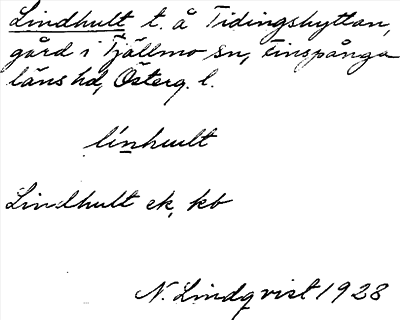 Lindhult t. å Tidingshyttan,
gård i Tjällmo sn, Finspånga
läns hd, Österg. l.
línhult
Lindhult ek, kb
N. Lindqvist 1928